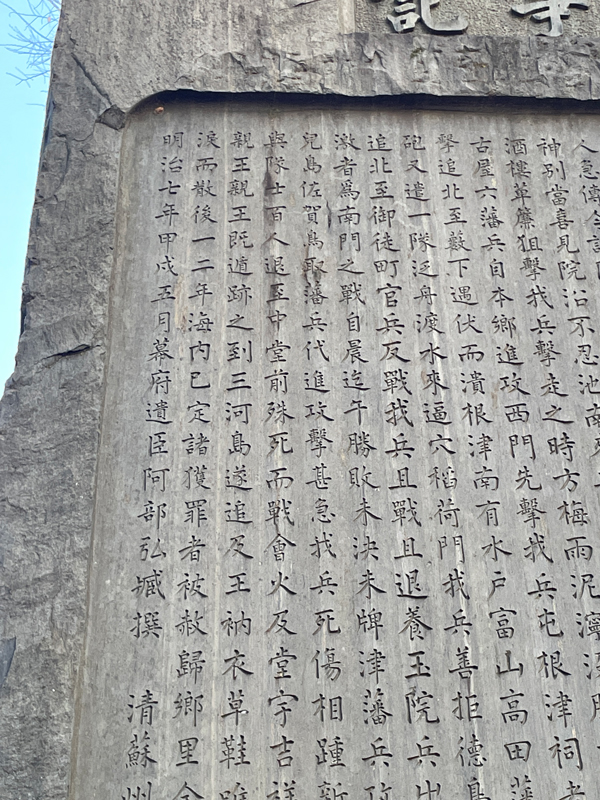 記
人急傳令諸
神別當喜見院沿不忍池南
酒樓革簾狙擊我兵擊走之時方梅雨泥濘沒
古屋六藩兵自本鄉進攻西門先擊我兵屯根津祠者
擊追北至藪下遇伏而潰根津南有水戶富山高田藩
砲又遣一隊泛舟渡水來逼穴稻荷門我兵善拒德島
追北至御徒町官兵反戰我兵且戰且退養玉院兵出
激者為南門之戰自晨迄午勝敗未決未牌津藩兵攻
兒島佐賀鳥取藩兵代進攻擊甚急我兵死傷相踵新
與隊士百人退至中堂前殊死而戰會火及堂宇吉祥
親王親王既遁跡之到三河島遂追及王衲衣草鞋唯
淚而散後一二年海內已定諸獲罪者被赦歸鄉里余
明治七年甲戌五月幕府遺臣阿部弘臧撰　清蘇州